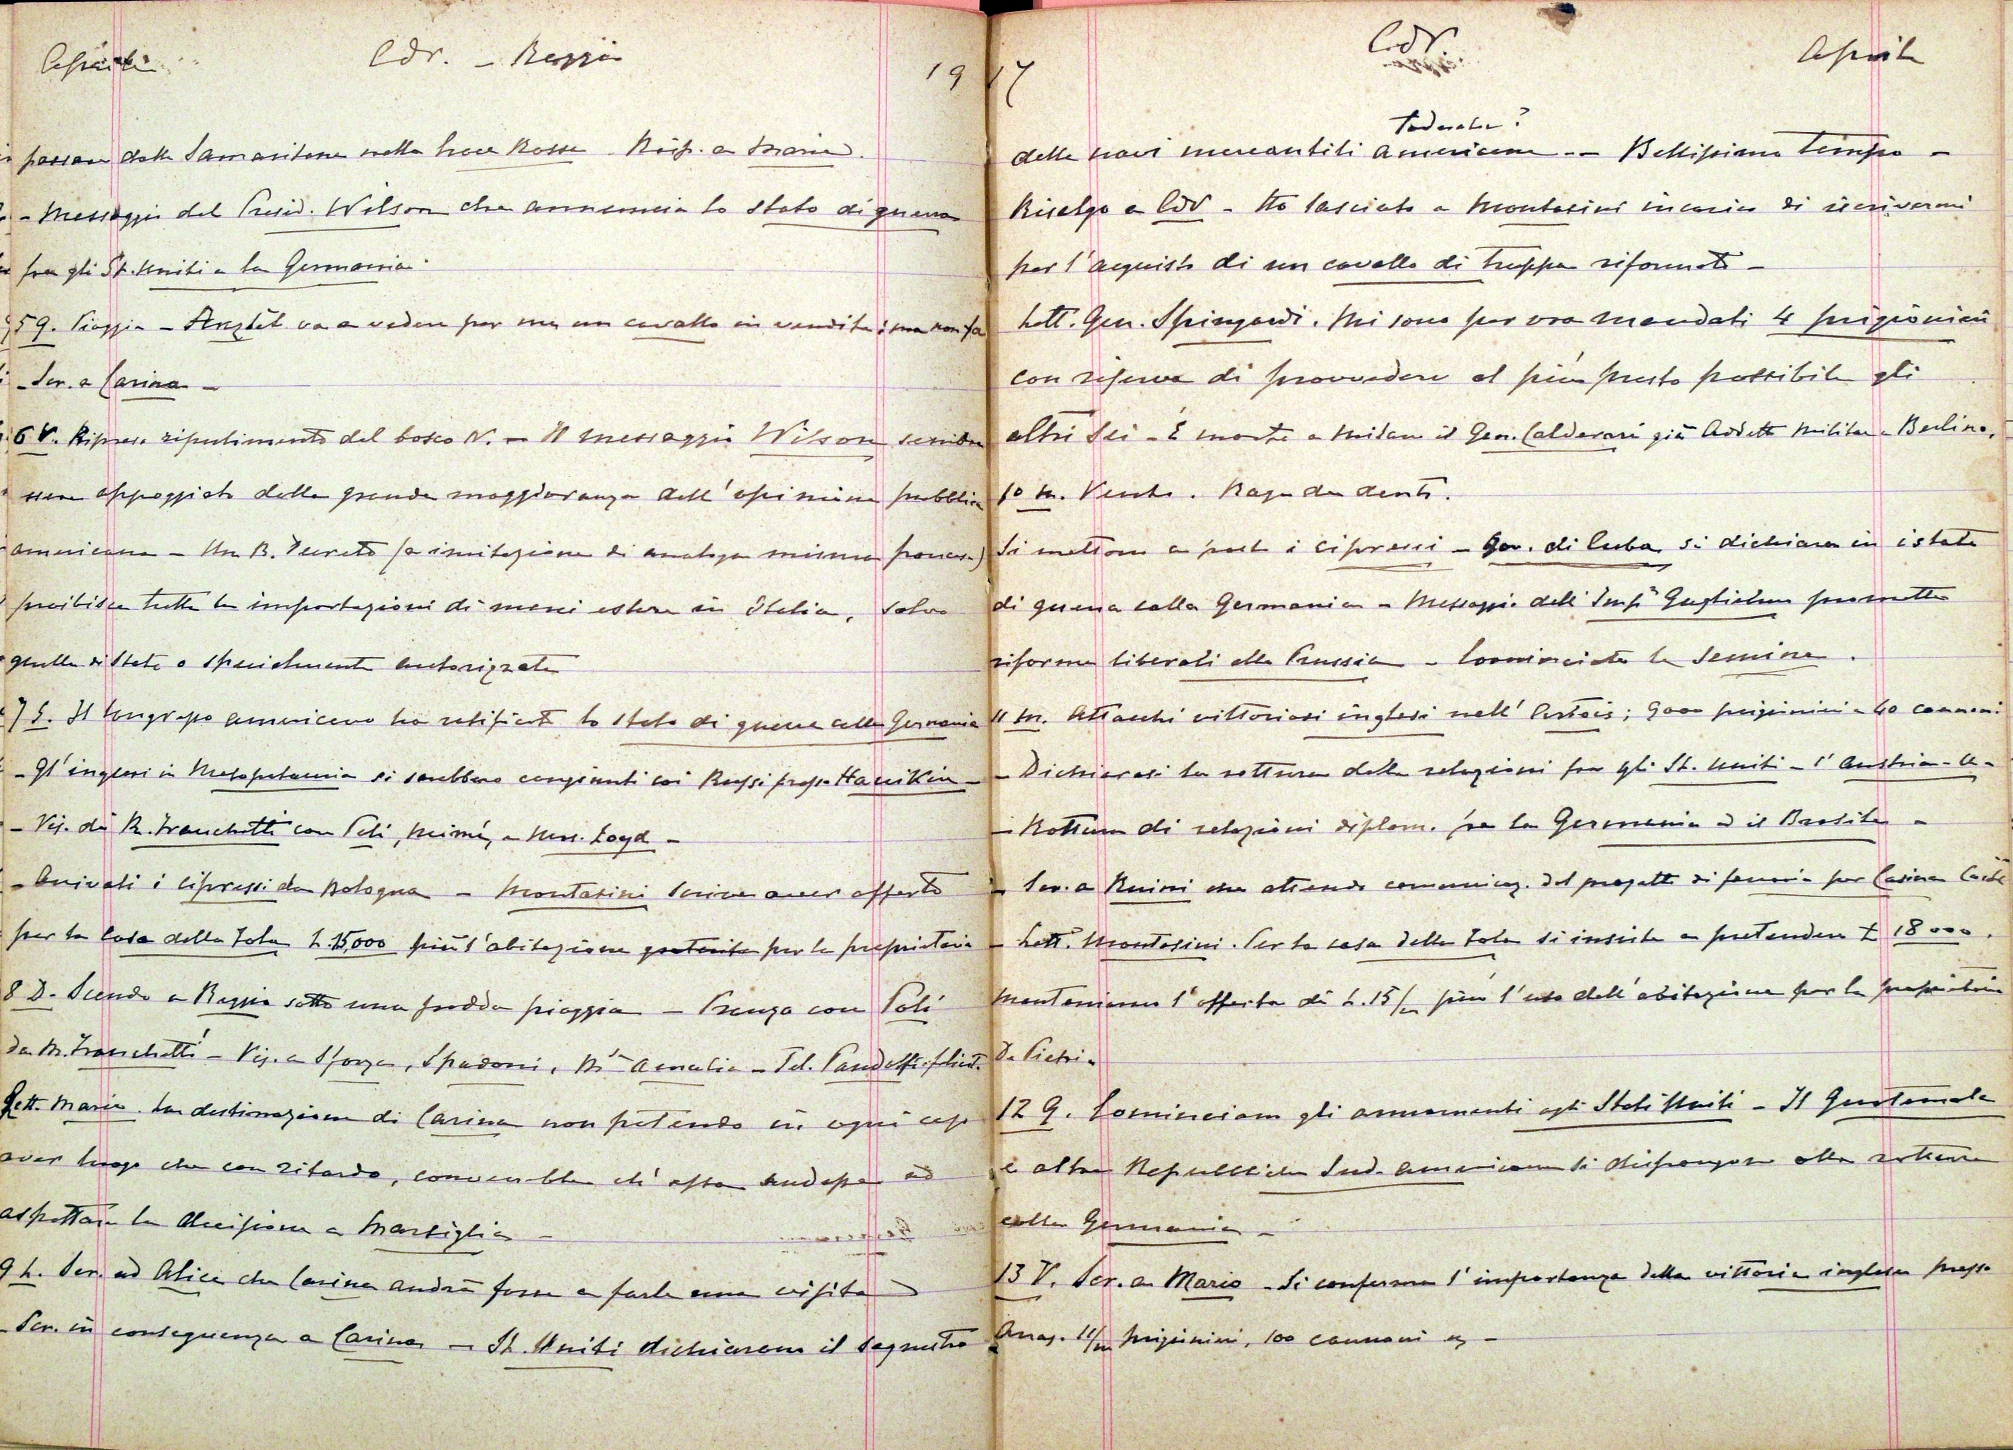 Aprile Cdr. - Reggio 19
passare dalle Samaritane nella Croce Rossa. Risp. a Maria.
- Messaggio del Presid. Wilson che annuncia lo stato di guerra
fra gli St. Uniti e la Germania.
5 G. Pioggia - va a vedere per me un cavallo in vendita: ma non fa
- Scr. a Carina -
6 V. Ripreso ripulimento del bosco N. - Il messaggio Wilson sembra
essere appoggiato dalla grande maggioranza dell'opinione pubblica
americana - Un R. Decreto (a imitazione di analoga misura francese)
proibisce tutte le importazioni di merci estere in Italia, salvo
quelle di Stato o specialmente autorizzate
7 S. Il Congresso americano ha ratificato lo stato di guerra colla Germania
- Gl'inglesi in Mesopotamia si sarebbero congiunti coi Russi presso Hanikin -
- Vis. di R. Franchetti con Poli, Mimì, e Mrs. Loyd -
- Arrivati i cipressi da Bologna - Montasini scrive aver offerto
per la Casa della Tola L. 15,000 più l'abitazione gratuita per la proprietaria
8 D. Scendo a Reggio sotto una fredda pioggia - Pranzo con Poli
da M. Franchetti - Vis. a Sforza, Spadoni, Amalia - Tel. Pandolfi felicit.
Lett. Maria. La destinazione di Carina non potendo in ogni caso
aver luogo che con ritardo, converrebbe ch'essa andasse ad
aspettare la decisione a Marsiglia -
9 L. Scr. ad Alice che Carina andrà forse a farle una visita
- Scr. in conseguenza a Carina - St. Uniti dichiarano il sequestro
17 Cdr. Aprile
tedesche?
delle navi mercantili americane - - Bellissimo tempo -
Risalgo a Cdr - Ho lasciato a Montasini incarico di scrivermi
per l'acquisto di un cavallo di truppa riformato -
Lett. Gen. Spingardi. Mi sono per ora mandati 4 prigionieri
con riserva di provvedere al più presto possibile gli
altri sei - È morto a Milano il Gen. Calderari già Addetto Militare a Berlino.
10 M. Vento. Rage de dents.
Si mettono a posto i cipressi - Gov. di Cuba si dichiara in istato
di guerra colla Germania - Messaggio dell'Imp.e Guglielmo promette
riforme liberali alla Prussia - Cominciata la semina.
11 M. Attacchi vittoriosi inglesi nell'Artois; 9000 prigionieri e 40 cannoni
- Dichiarasi la rottura delle relazioni fra gli St. Uniti - l'Austria-U-
- Rottura di relazioni diplom. fra la Germania ed il Brasile -
- Scr. a Ruini che attendo comunicaz. del progetto di ferrovia per Casina
- Lett. Montasini. Per la casa della Tola si insiste a pretendere L 18000.
Manteniamo l'offerta di L. 15/m più l'uso dell'abitazione per la proprietaria
De Pietri -
12 G. Cominciano gli armamenti agli Stati Uniti - Il Guatemala
e altre Repubbliche Sud-americane si dispongono alla rottura
colla Germania -
13 V. Scr. a Mario - Si conferma l'importanza della vittoria inglese presso
Arras. 11/m prigionieri, 100 cannoni -